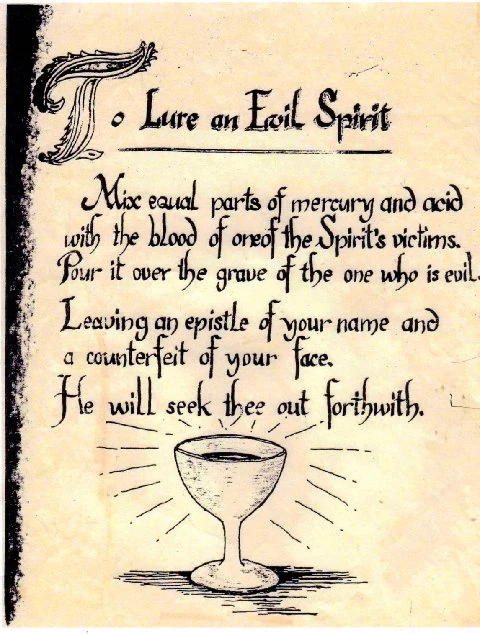 To Lure an Evil Spirit
Mix equal parts of mercury and acid
with the blood of oneof the Spirit's victims.
Pour it over the grave of the one who is evil.
Leaving an epistle of your name and
a counterfeit of your face.
He will seek thee out forthwith.